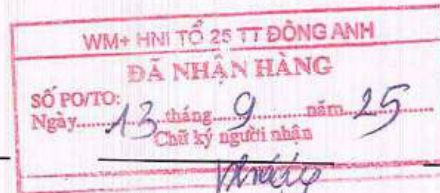 WM+ HNI TỔ 25 TT ĐÔNG ANH
ĐÃ NHẬN HÀNG
SỐ PO/TO:
Ngày 13 tháng 9 năm 25
Chữ ký người nhận